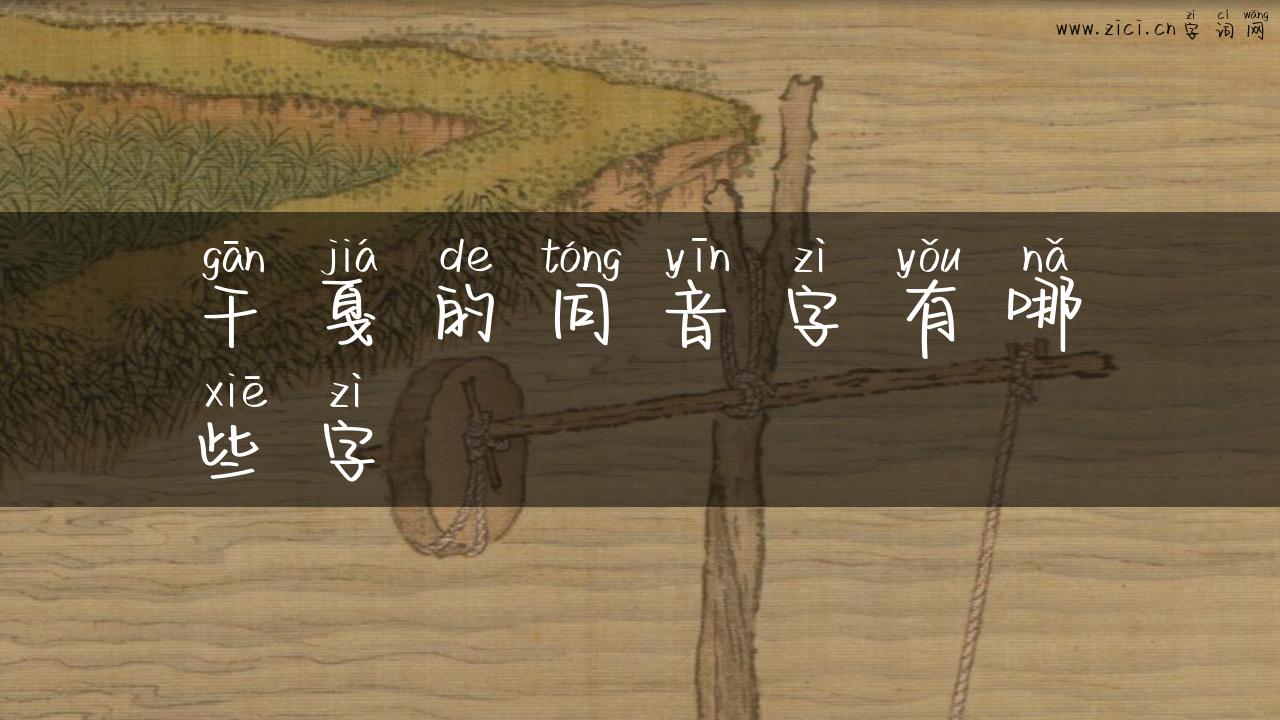 zì cí wǎng
www.zici.cn 字词网
gān jiá de tóng yīn zì yǒu nǎ
干戛的同音字有哪
xiē zì
些字